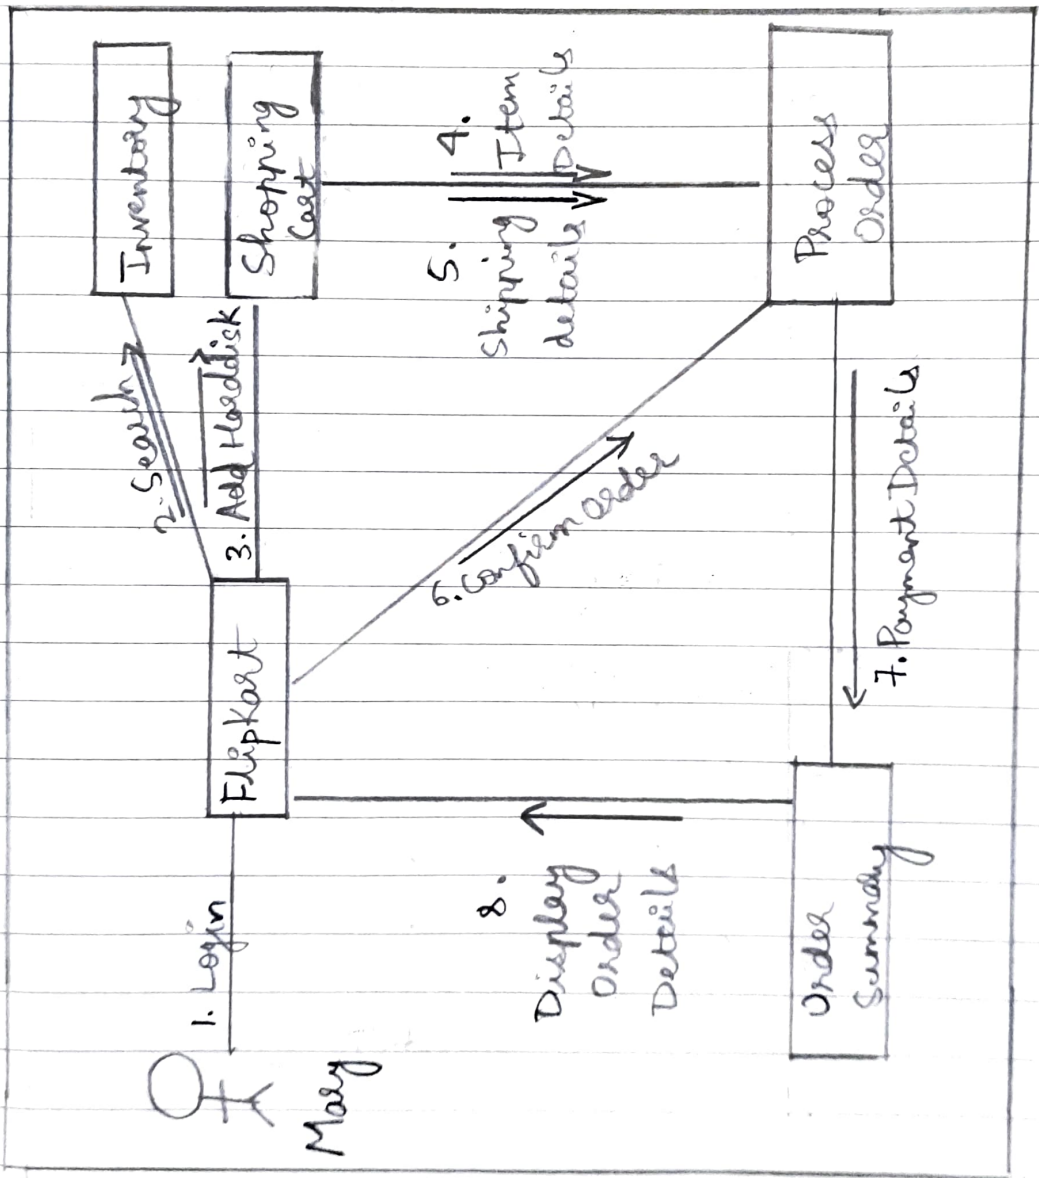 Mary
1. Login
Flipkart
2. Search
Inventory
3. Add Harddisk
Shopping
Cart
4.
Item
Details
5.
Shipping
details
Process
Order
6. Confirm Order
7. Payment Details
Order
Summary
8.
Display
Order
Details